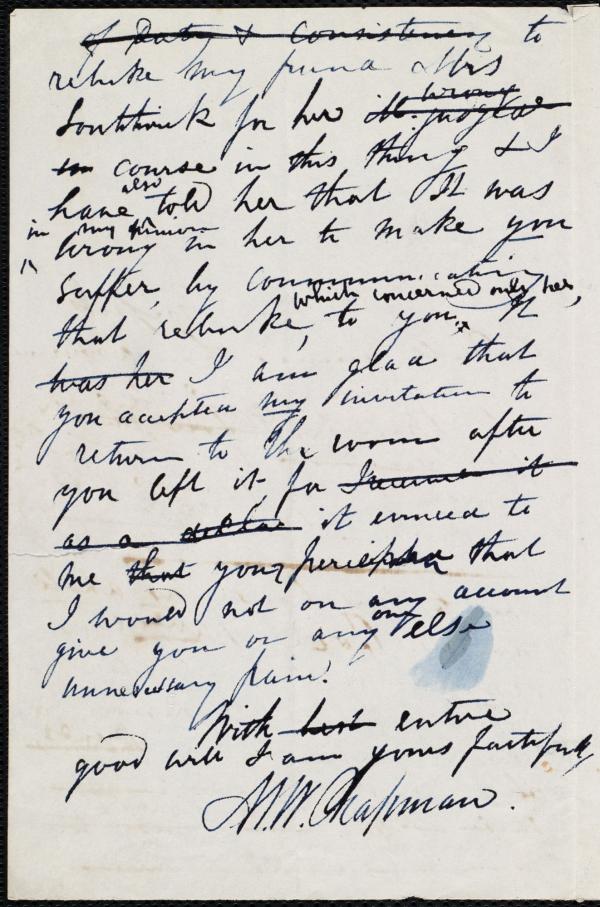 of Duty & Consistency to
rebuke my friend Mrs
Southwick for her wrong
in course in this thing & I
have also told her that It was
in my opinion
wrong in her to make you
suffer, by communicating
which concerned only her,
that rebuke, to you. It
was her I am glad that
you accepted my invitation to
return to the room after
you left it, for I it
as a it evinced to
me that you perceived that
I would not on any account
give you or any one else
unnecessary pain.
With best entire
good will I am yours faithfully
M. W. Chapman.